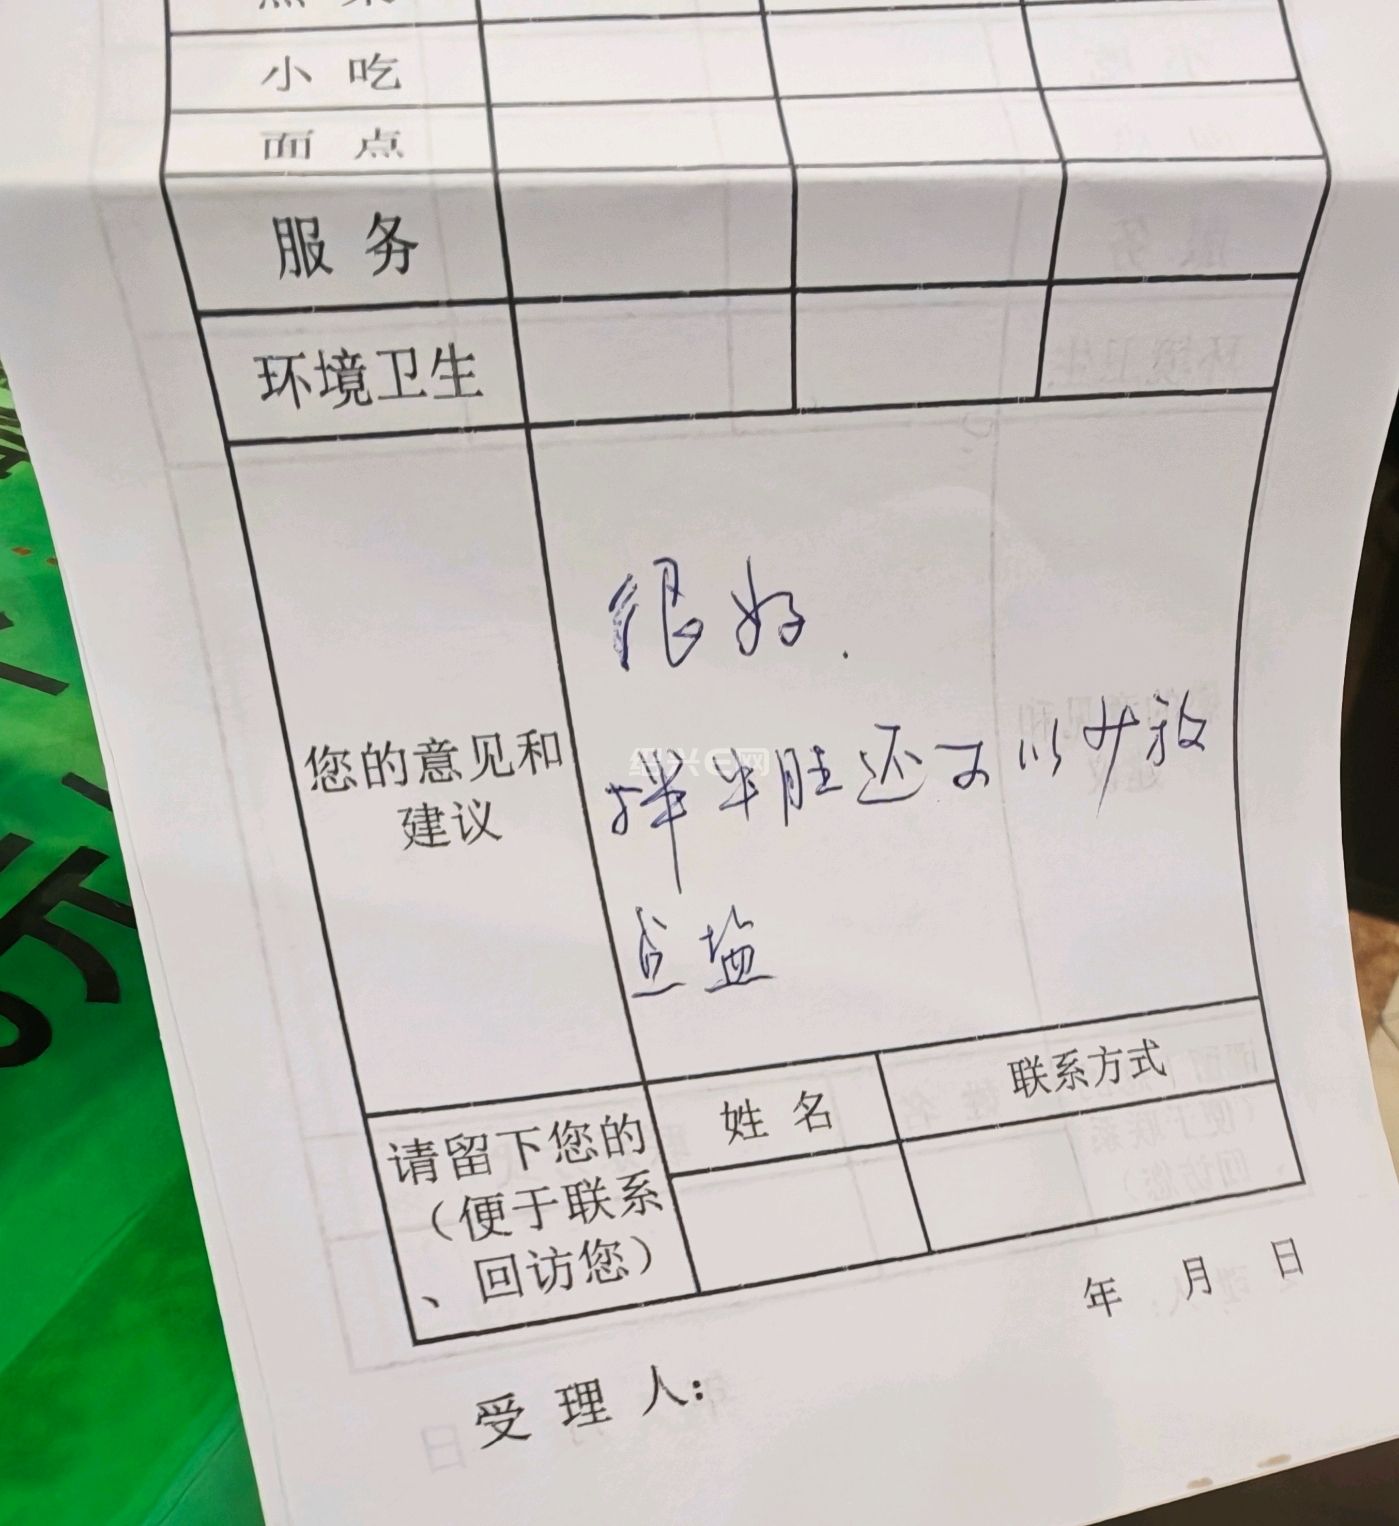 小 吃
面 点
服 务
环境卫生
您的意见和
建议
很好.
拌牛肚还可以少放
点盐
绍兴E网
请留下您的
(便于联系
、回访您)
姓 名
联系方式
年 月 日
受 理 人: